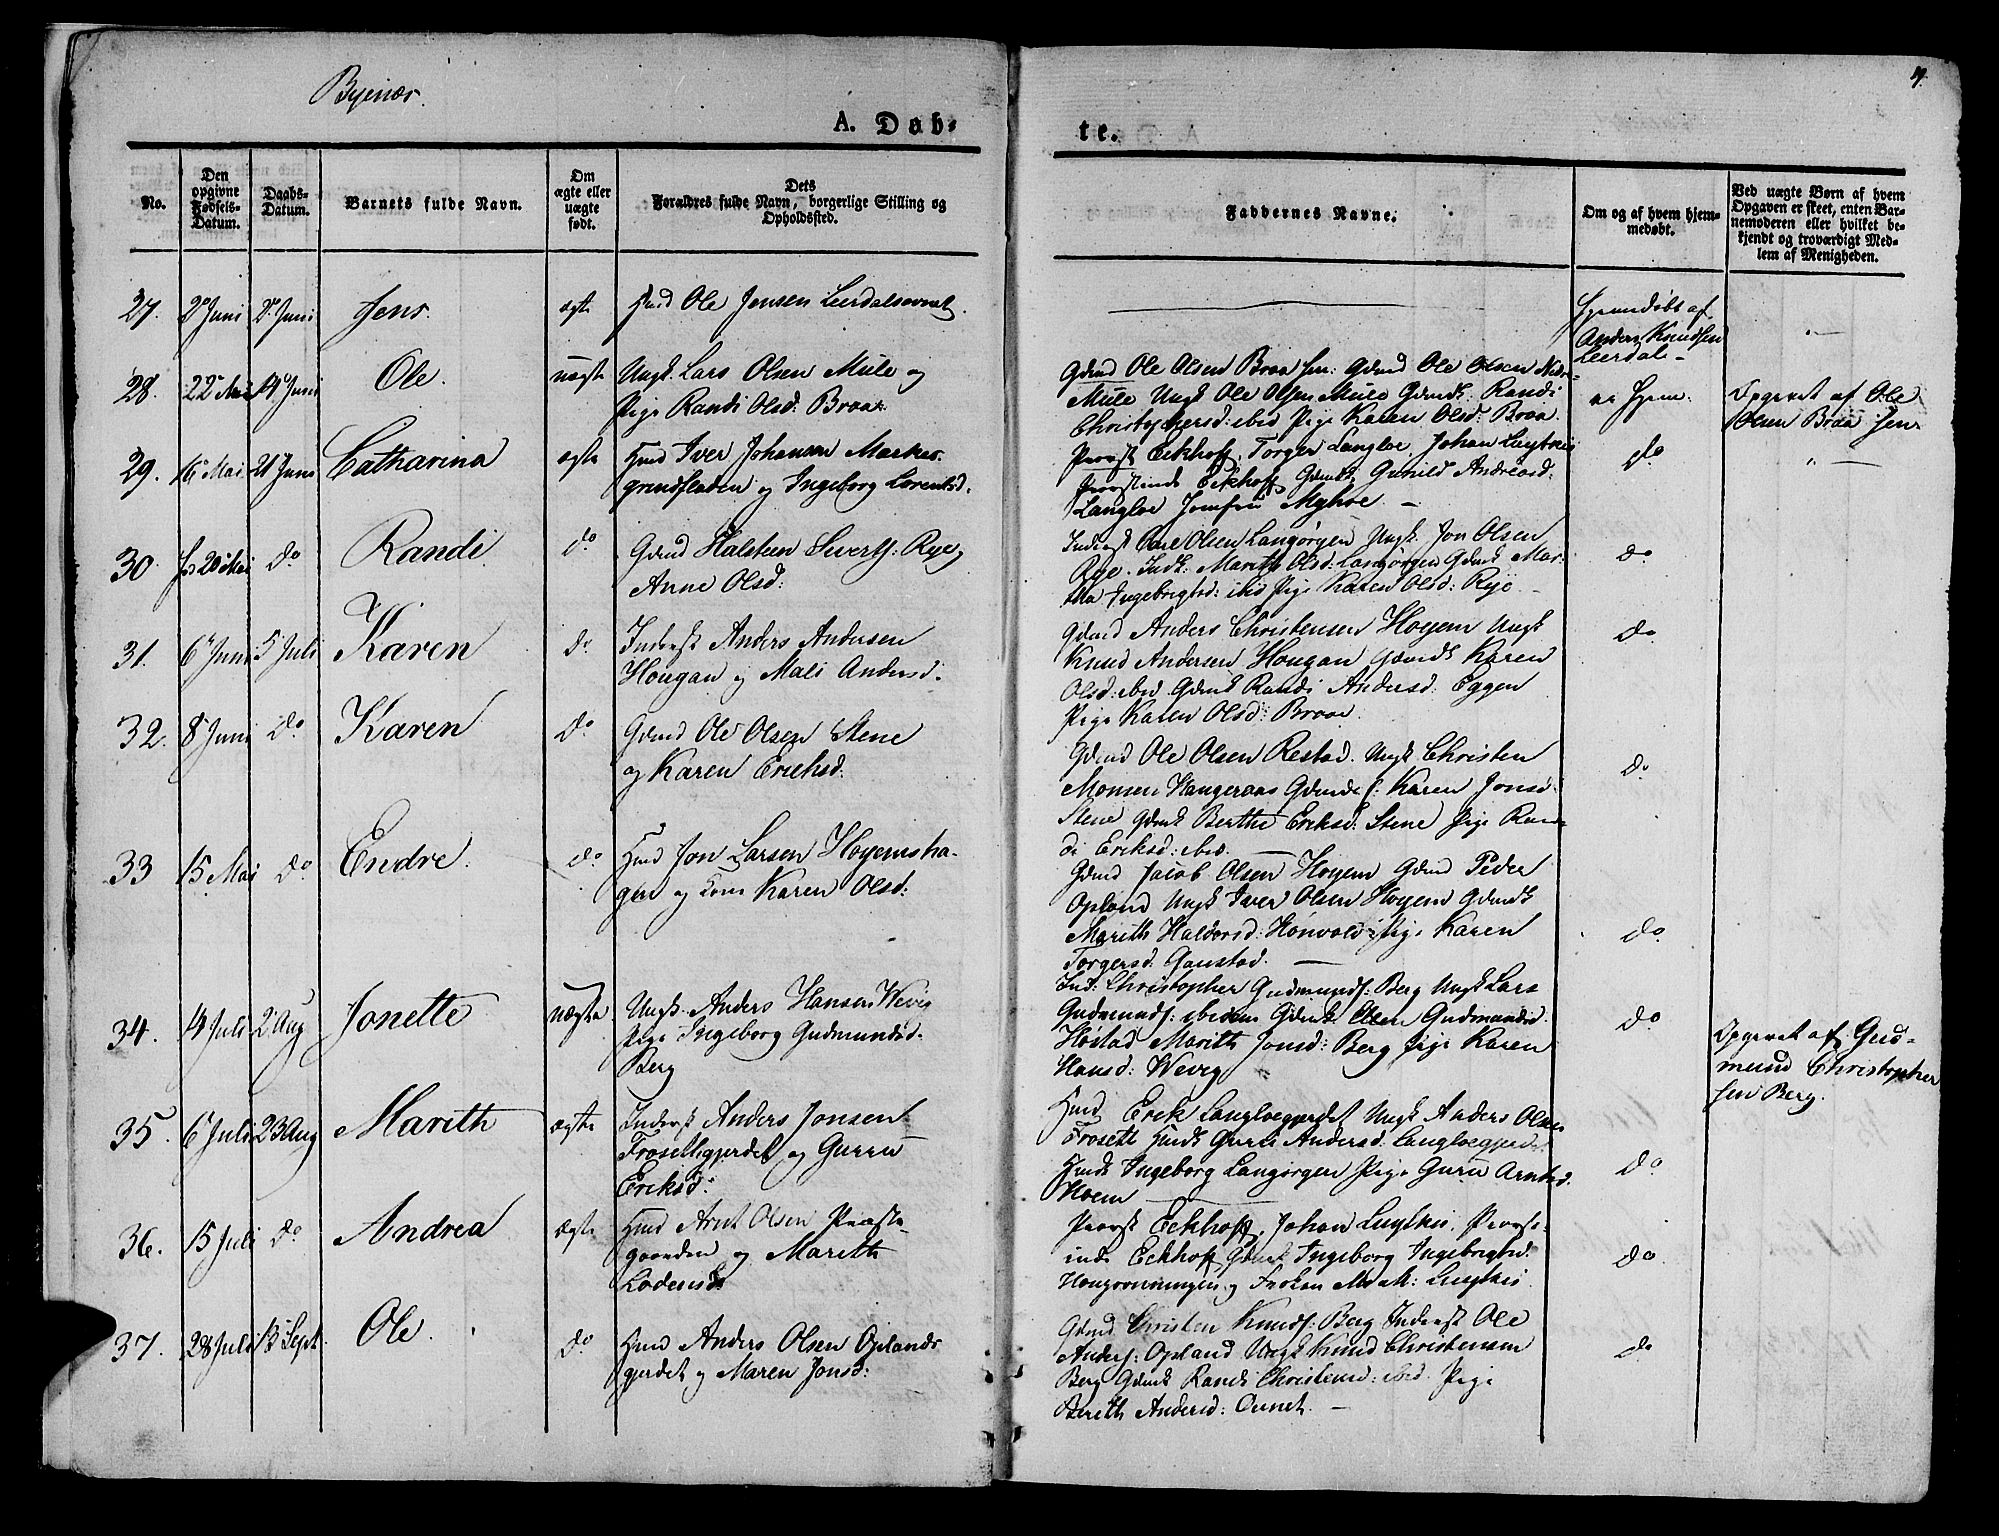 Byenæs.
4.
A. Døb-
te.
No.
Den
opgivne
Fødsels-
Datum.
Daabs-
Datum.
Barnets fulde Navn.
Om
ægte eller
uægte
født.
Dets
Forældres fulde Navn, borgerlige Stilling og
Opholdssted.
Faddernes Navne.
Om og af hvem hjem-
medøbt.
Ved uægte Børn af hvem
Opgaven er skeet, enten Bar-
nemoderen eller hvilket be-
kjendt og troværdigt Med-
lem af Menigheden.
27. 2 Juni 2 Juni Jens. ægte
Hmd Ole Jensen Leerdalsovnet.
Hjemdøbt af
Anders Knudsen
Leerdal
28. 22 Mai 14 Juni Ole. uægte
Ungk. Lars Olsen Mule og
Pige Randi Olsd: Braa.
Gdmd Ole Olsen Braa sen: Gdmd Ole Olsen Nedre-
Mule Ungk Ole Olsen Mule Gdmdk. Randi
Christophersd: ibid Pige Karen Olsd: Braa.
ei Hjem.
Opgevet af Ole
Olsen Braa Sen
29. 16 Mai 21 Juni Catharina ægte
Hmd Iver Johansen Markus
grindfladen og Ingeborg Lorentsd.
Provst Eckhoff, Torger Langloe, Johan Luytkis
Provstinde Eckhoff Gdmdk. Gunild Andreasd.
Langloe Jomfru Myhre
do
30. 20 Mai do Randi do
Gdmd Halsteen Sivertss: Rye og
Anne Olsd:
Inderst Ole Olsen Langørgen Ungk. Jon Olsen
Rye. Indk: Marith Olsd: Langørgen Gdmdk Mar-
tha Ingebrigtsd: ibid Pige Karen Olsd: Rye
do
31. 6 Juni 5 Juli Karen do
Inderst Anders Andersen
Hougan og Mali Andersd.
Gdmd Anders Christensen Hoyem Ungk
Knud Andersen Hougan Gdmdk Karen
Olsd: ibid Gdmdk Randi Andersd: Eggen
Pige Karen Olsd: Braae.
do
32. 8 Juni do Karen do
Gdmd Ole Olsen Stene
og Karen Ericksd:
Gdmd Ole Olsen Restad. Ungk Christen
Monsen Haugeraas Karen Jonsd:
Stene Gdmdk Berthe Eriksd: Stene Pige Ran-
di Eriksd: ibid.
do
33 15 Mai do Endre. do
Hmd Jon Larsen Hoyemsha-
gen og Kone Karen Olsd:
Gdmd Jacob Olsen Hoyem Gdmd Peder
Opland Ungk Iver Olsen Hoyem Gdmdk
Marith Haldorsd: Hønvold Pige Karen
Torgersd: Gaustad.
do
34. 14 Juli 2 Aug Jonette uægte.
Ungk. Anders Hansen Wevig
Pige Ingeborg Gudmundsd.
Berg
Ind: Christopher Gudmunds: Berg Ungk Lars
Gudmunds: ibidem Gdmdk Olen Gudmandsd.
Høstad Marith Jonsd: Berg Pige Karen
Hansd: Wevig
do
Opgevet af Gud-
mund Christopher
sen Berg.
35. 6 Juli 23 Aug Marith ægte
Inderst Anders Jonsen
Frosethgjerdet og Gurru
Eriksd:
Hmd Erek Langloegjerdet Ungk Anders Olsen
Froseth Hmdk Gurru Andersd. Langloegjerd.
Hmdk Ingeborg Langørgen Pige Guru Arntsd.
Hoem
do
36. 15 Juli do Andrea ægte
Hmd Arnt Olsen Præste
gaarden og Marith
Lodensd:
Provst Eckhoff, Johan Luytkis, Provst-
inde Eckhoff Gdmdk Ingeborg Ingebrigtsd.
og Frøken M: Luytkis
do
37. 28 Juli 13 Sept. Ole. do
Hmd Anders Olsen Oplands
gjerdet og Maren Jonsd:
Gdmd Christen Knuds: Berg Inderst Ole
Anders: Opland Ungk Knud Christensen
Berg Gdmdk Randi Christensd: ibid. Pige
Berith Andersd: Ounet.
do